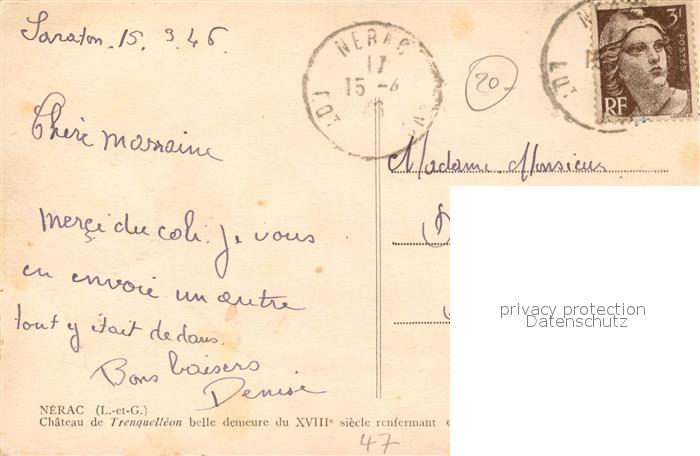 15. 3. 46.
NERAC
17
15 -4
20-
3F
POSTES
RF
Chère marraine
Madame. Monsieur
merçi du coli. Je vous
en envoie un autre
tout y était dedans.
Bons baisers
Denise
privacy protection
Datenschutz
NÉRAC (L.-et-G.)
Château de Trenquelléon belle demeure du XVIIIe siècle renfermant
47